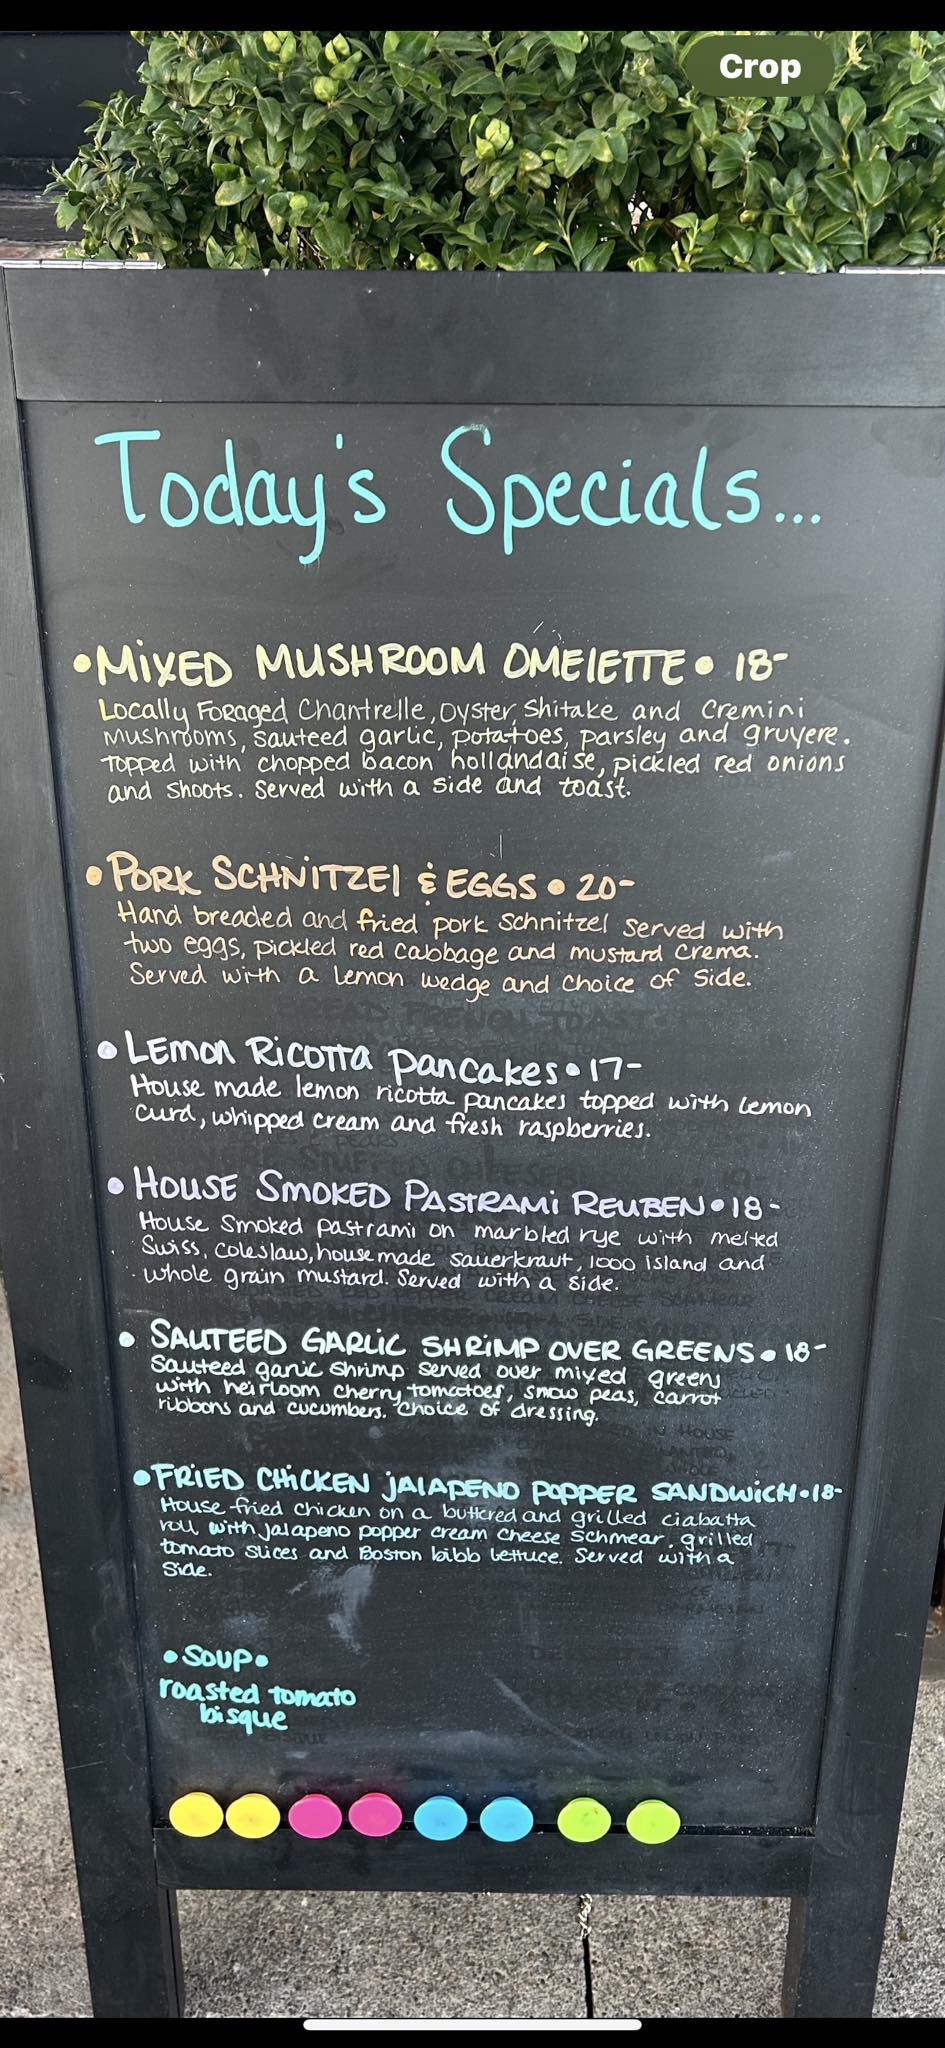 Crop
Today's Specials...
• MIXED MUSHROOM OMELETTE • 18-
Locally Foraged Chantrelle, Oyster, Shitake and Cremini
Mushrooms, sauteed garlic, potatoes, parsley and gruyere.
topped with chopped bacon hollandaise, pickled red onions
and shoots. Served with a side and toast.
• PORK SCHNITZEL & EGGS • 20-
Hand breaded and fried pork Schnitzel served with
two eggs, pickled red cabbage and mustard crema.
Served with a lemon wedge and choice of side.
• LEMON RICOTTA PANCAKES • 17-
House made lemon ricotta pancakes topped with lemon
curd, whipped cream and fresh raspberries.
• HOUSE SMOKED PASTRAMI REUBEN • 18-
House Smoked pastrami on marbled rye with melted
Swiss, coleslaw, housemade sauerkraut, 1000 island and
whole grain mustard. Served with a side.
• SAUTEED GARLIC SHRIMP OVER GREENS • 18-
Sauteed garlic shrimp served over mixed greens
with heirloom cherry tomatoes, snow peas, carrot
ribbons and cucumbers. Choice of dressing.
• FRIED CHICKEN JALAPENO POPPER SANDWICH • 18-
House fried chicken on a buttered and grilled ciabatta
roll with jalapeno popper cream cheese Schmear, grilled
tomato slices and Boston bibb lettuce. Served with a
side.
• SOUP •
roasted tomato
bisque